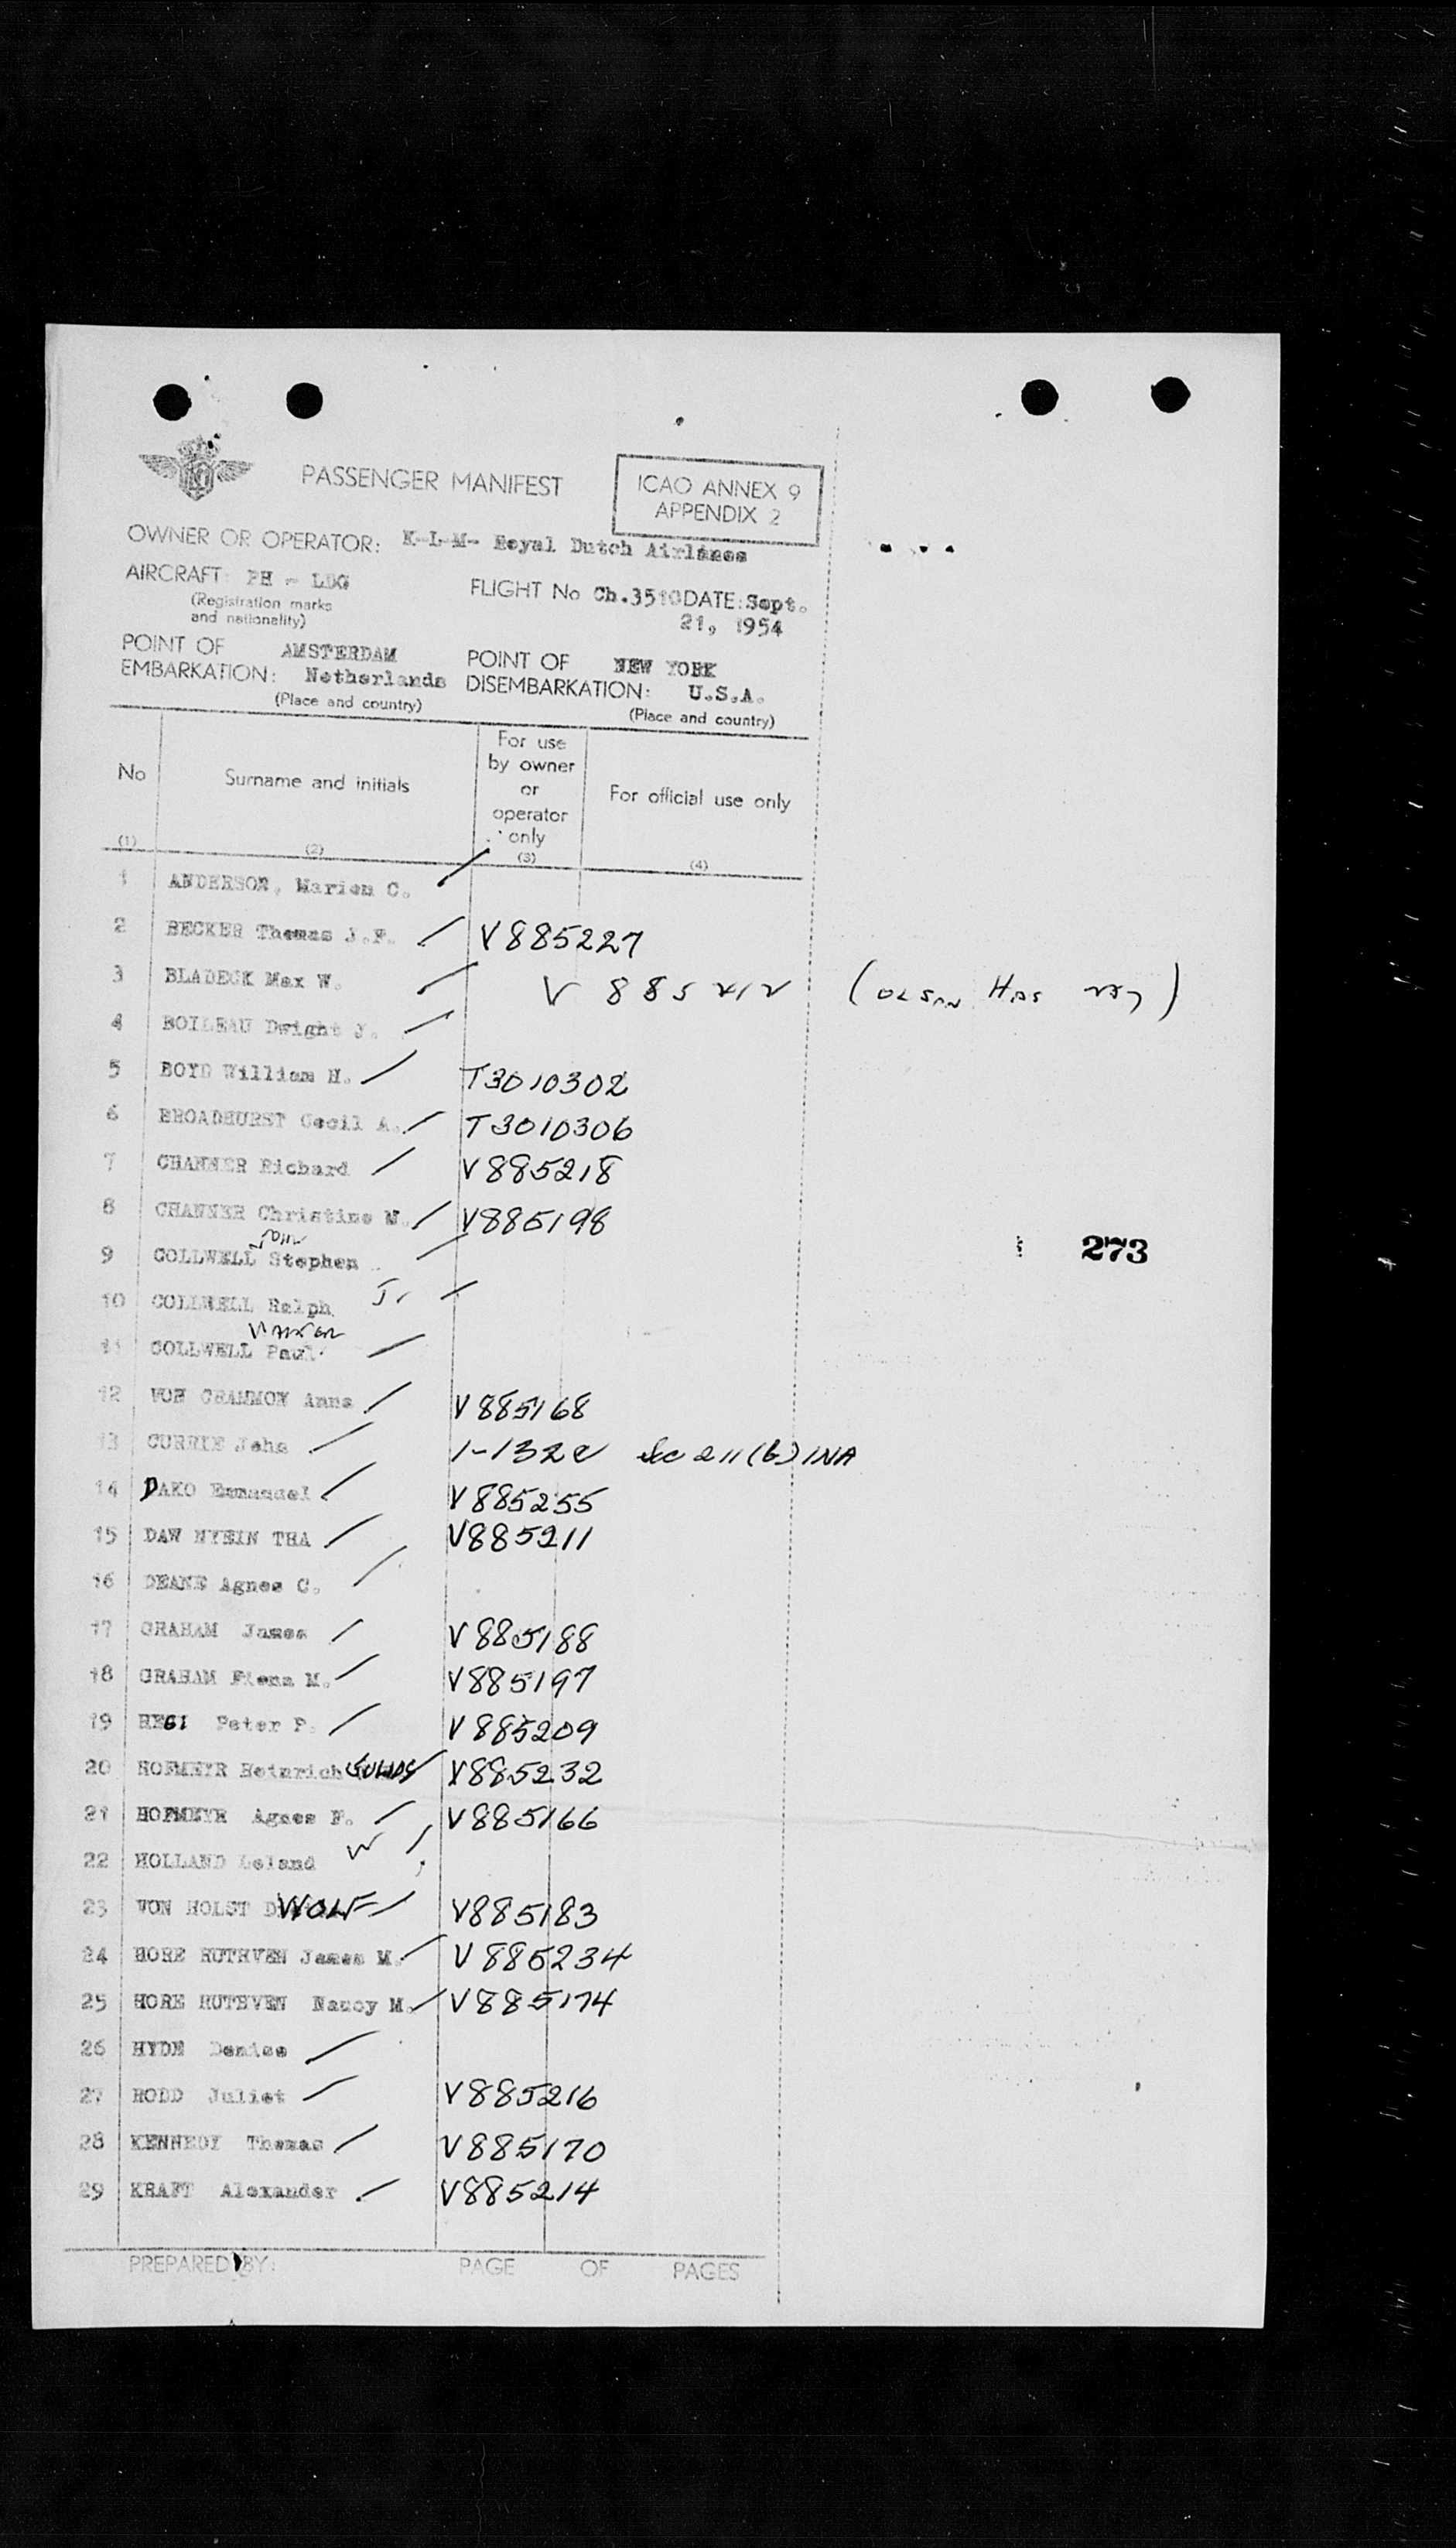 PASSENGER MANIFEST
ICAO ANNEX 9
APPENDIX 2
OWNER OR OPERATOR: K-L-M- Royal Dutch Airlines
AIRCRAFT: PH - LDG
(Registration marks
and nationality)
FLIGHT No Ch.3510 DATE: Sept.
21, 1954
POINT OF AMSTERDAM
EMBARKATION: Netherlands
(Place and country)
POINT OF NEW YORK
DISEMBARKATION: U.S.A.
(Place and country)
No
Surname and initials
For use
by owner
or
operator
only
For official use only
(1) (2) (3) (4)
1 ANDERSON, Marion C.
2 BECKER Thomas J.F. V885227
3 BLADECK Max W. V 885 (OLSON HAS )
4 BOILEAU Dwight J.
5 BOYD William H. T3010302
6 BROADHURST Cecil A. T3010306
7 CHANNER Richard V885218
8 CHANNER Christine M. V885198
9 COLLWELL Stephen
10 COLLWELL Ralph Jr
11 COLLWELL Paul
12 VON CRAMMON Anna V885168
13 CURRIE John 1-132 Sec 211(b) INA
14 DAKO Emmanuel V885255
15 DAW NYEIN THA V885211
16 DEANE Agnes C.
17 GRAHAM James V885188
18 GRAHAM Fiona M. V885197
19 HEGI Peter P. V885209
20 HOFMEYR Heinrich V885232
21 HOFMEYR Agnes F. V885166
22 HOLLAND Leland W
23 VON HOLST WOLF V885183
24 HORE RUTHVEN James M. V885234
25 HORE RUTHVEN Nancy M. V885174
26 HYDE Denise
27 RODD Juliet V885216
28 KENNEDY Thomas V885170
29 KRAFT Alexander V885214
273
PREPARED BY: PAGE OF PAGES